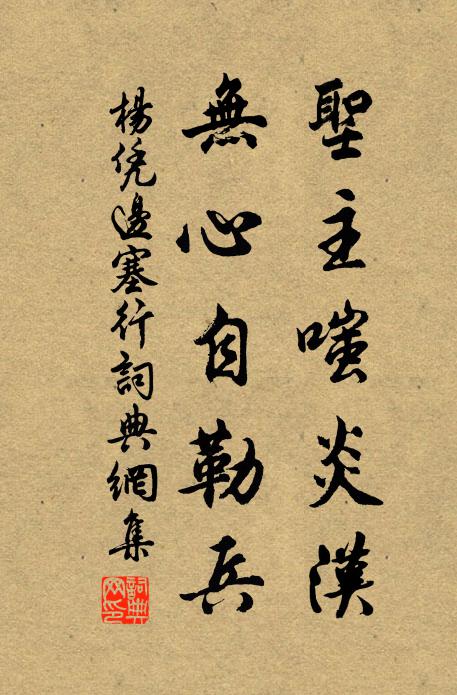 聖主嗤炎漢
無心自勒兵
楊凭邊塞行詞典網集
詞典網印